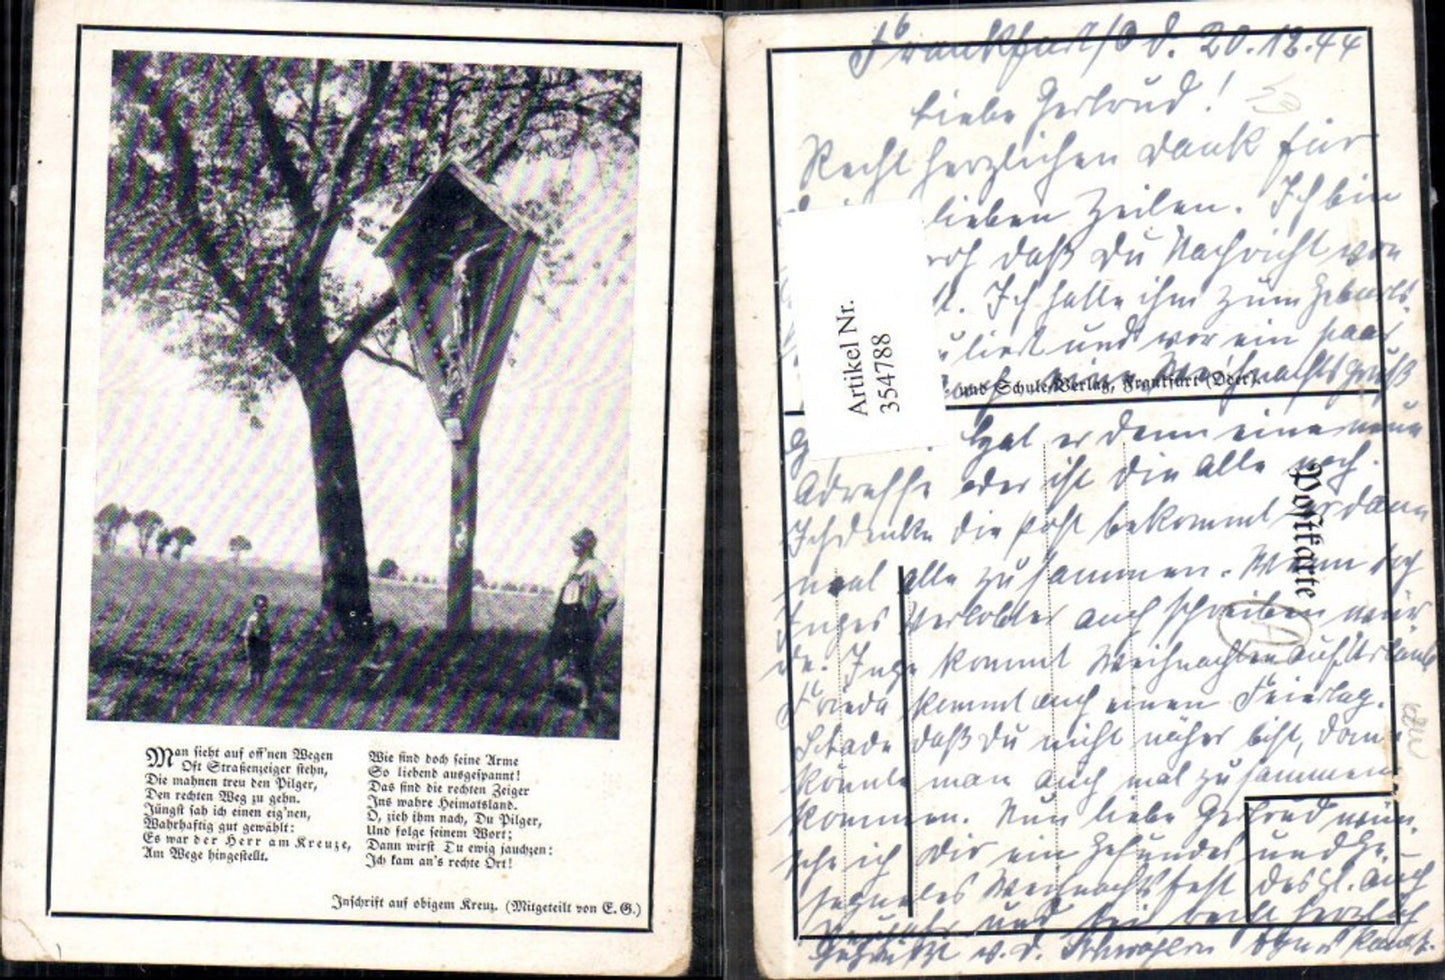 Man sieht auf off'nen Wegen
Oft Straßenzeiger stehn,
Die mahnen treu den Pilger,
Den rechten Weg zu gehn.
Jüngst sah ich einen eig'nen,
Wahrhaftig gut gewählt:
Es war der Herr am Kreuze,
Am Wege hingestellt.
Wie sind doch seine Arme
So liebend ausgespannt!
Das sind die rechten Zeiger
Ins wahre Heimatsland.
O, zieh ihm nach, Du Pilger,
Und folge seinem Wort;
Dann wirst Du ewig jauchzen:
Ich kam an's rechte Ort!
Inschrift auf obigem Kreuz. (Mitgeteilt von E. G.)
Frankfurt/O d. 20.12.44
Liebe Gertrud!
Recht herzlichen Dank für
lieben Zeilen. Ich bin
froh daß Du Nachricht von
Ich hatte ihm zum Geburts
und vor ein paar
Weihnachtsgruß
und Schule Verlag, Frankfurt (Oder).
Artikel Nr.
354788
Hat er denn eine neue
Adresse oder ist die alte noch.
Ich denke die Post bekommt er dann
mal alle zusammen. Wenn sich
Inges Verlobter auch schreiben wür
de. Inge kommt Weihnachten auf Urlaub
Frieda kommt auch einen Feiertag.
Schade daß Du nicht näher bist, dann
könnte man auch mal zusammen
kommen. Nun liebe Gertrud wün
sche ich Dir ein gesundes und ge
segnetes Weihnachtsfest desgl. auch
Neujahr und sei recht herzlich
gegrüßt v. d.
Postkarte